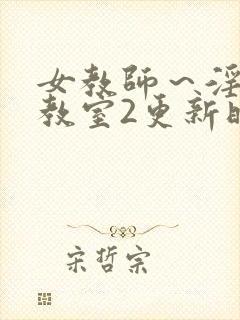 女教师～淫
教室2更新时
宋哲宗